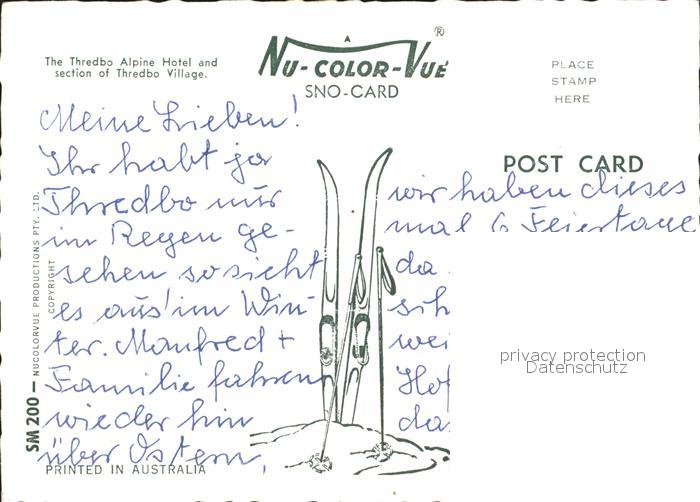 The Thredbo Alpine Hotel and
section of Thredbo Village.
A
NU-COLOR-VUE ®
SNO-CARD
PLACE
STAMP
HERE
POST CARD
Meine Lieben!
Ihr habt ja
Thredbo nur
im Regen ge-
sehen so sieht
es aus im Win-
ter. Manfred +
Familie fahren
wieder hin
über Ostern,
wir haben dieses
mal 6 Feiertage
da
sih
wei
Hof
das
SM 200 — NUCOLORVUE PRODUCTIONS PTY. LTD.
COPYRIGHT
PRINTED IN AUSTRALIA
privacy protection
Datenschutz